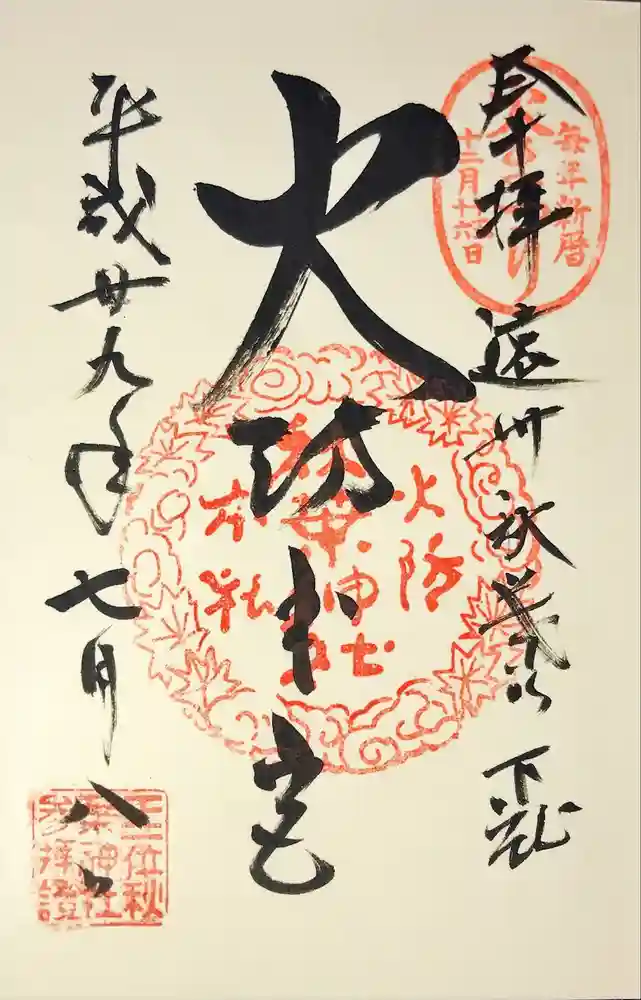 奉拝
遠州 秋葉山 下社
毎年新暦
十二月十六日
火防本宮
火防
秋葉神社
本社
平成廿九年七月八日
正一位秋
葉神社
参拝證